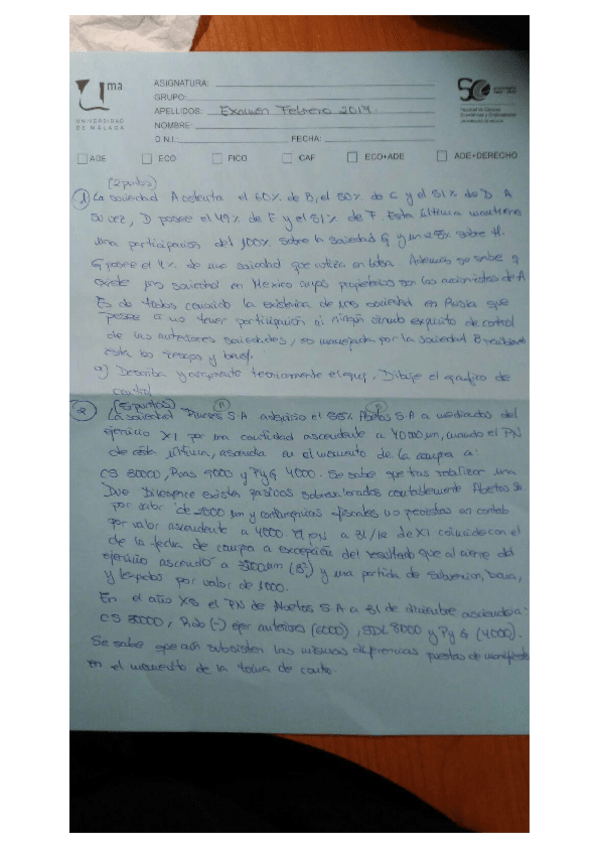 uma
UNIVERSIDAD
DE MÁLAGA
ASIGNATURA:
GRUPO:
APELLIDOS: Examen Febrero 2019.
NOMBRE:
D.N.I.: FECHA:
50
Facultad de Ciencias
Económicas y Empresariales
ADE ECO FICO CAF ECO+ADE ADE+DERECHO
(2 puntos)
1 La sociedad A ostenta el 60% de B, el 80% de C y el 51% de D. A
su vez, D posee el 49% de E y el 51% de F. Esta última mantiene
una participación del 100% sobre la sociedad G y un 28% sobre H.
G posee el 4% de una sociedad que cotiza en bolsa. Además se sabe q
existe una sociedad en Mexico cuyos propietarios son los accionistas de A
Es de todos conocido la existencia de una sociedad en Rusia que
pese a no tener participación ni ningún vínculo explícito de control
de las anteriores sociedades, es manejada por la sociedad B recibiendo
esta los riesgos y benef.
a) Describa y argumente teoricamente el grupo. Dibuje el grafico de
control
2 (5 puntos) A
La sociedad S.A adquirio el 55% Abetos S.A a mediados del
ejercicio X1 por una cantidad ascendente a 40000 um, cuando el PN
de esta última, ascendia en el momento de la compra a:
CS 30000, Rvas 9000 y PyG 4000. Se sabe que tras realizar una
Due Diligence existen pasivos sobrevalorados contablemente Abetos SA
por valor de um y contingencias fiscales no recogidas en contab
por valor ascendente a 4000. El PN a 31/12 de X1 coincide con el
de la fecha de compra a excepción del resultado que al cierre del
ejercicio ascendió a um (Bº) y una partida de subvencion, donac,
y legados por valor de 1000.
En el año X3 el PN de Abetos S.A a 31 de diciembre asciende a:
CS 30000, Rtdo (-) ejer anteriores (6000), SDL 8000 y PyG (4000).
Se sabe que aún subsisten las mismas diferencias puestas de manifiesto
en el momento de la toma de control.